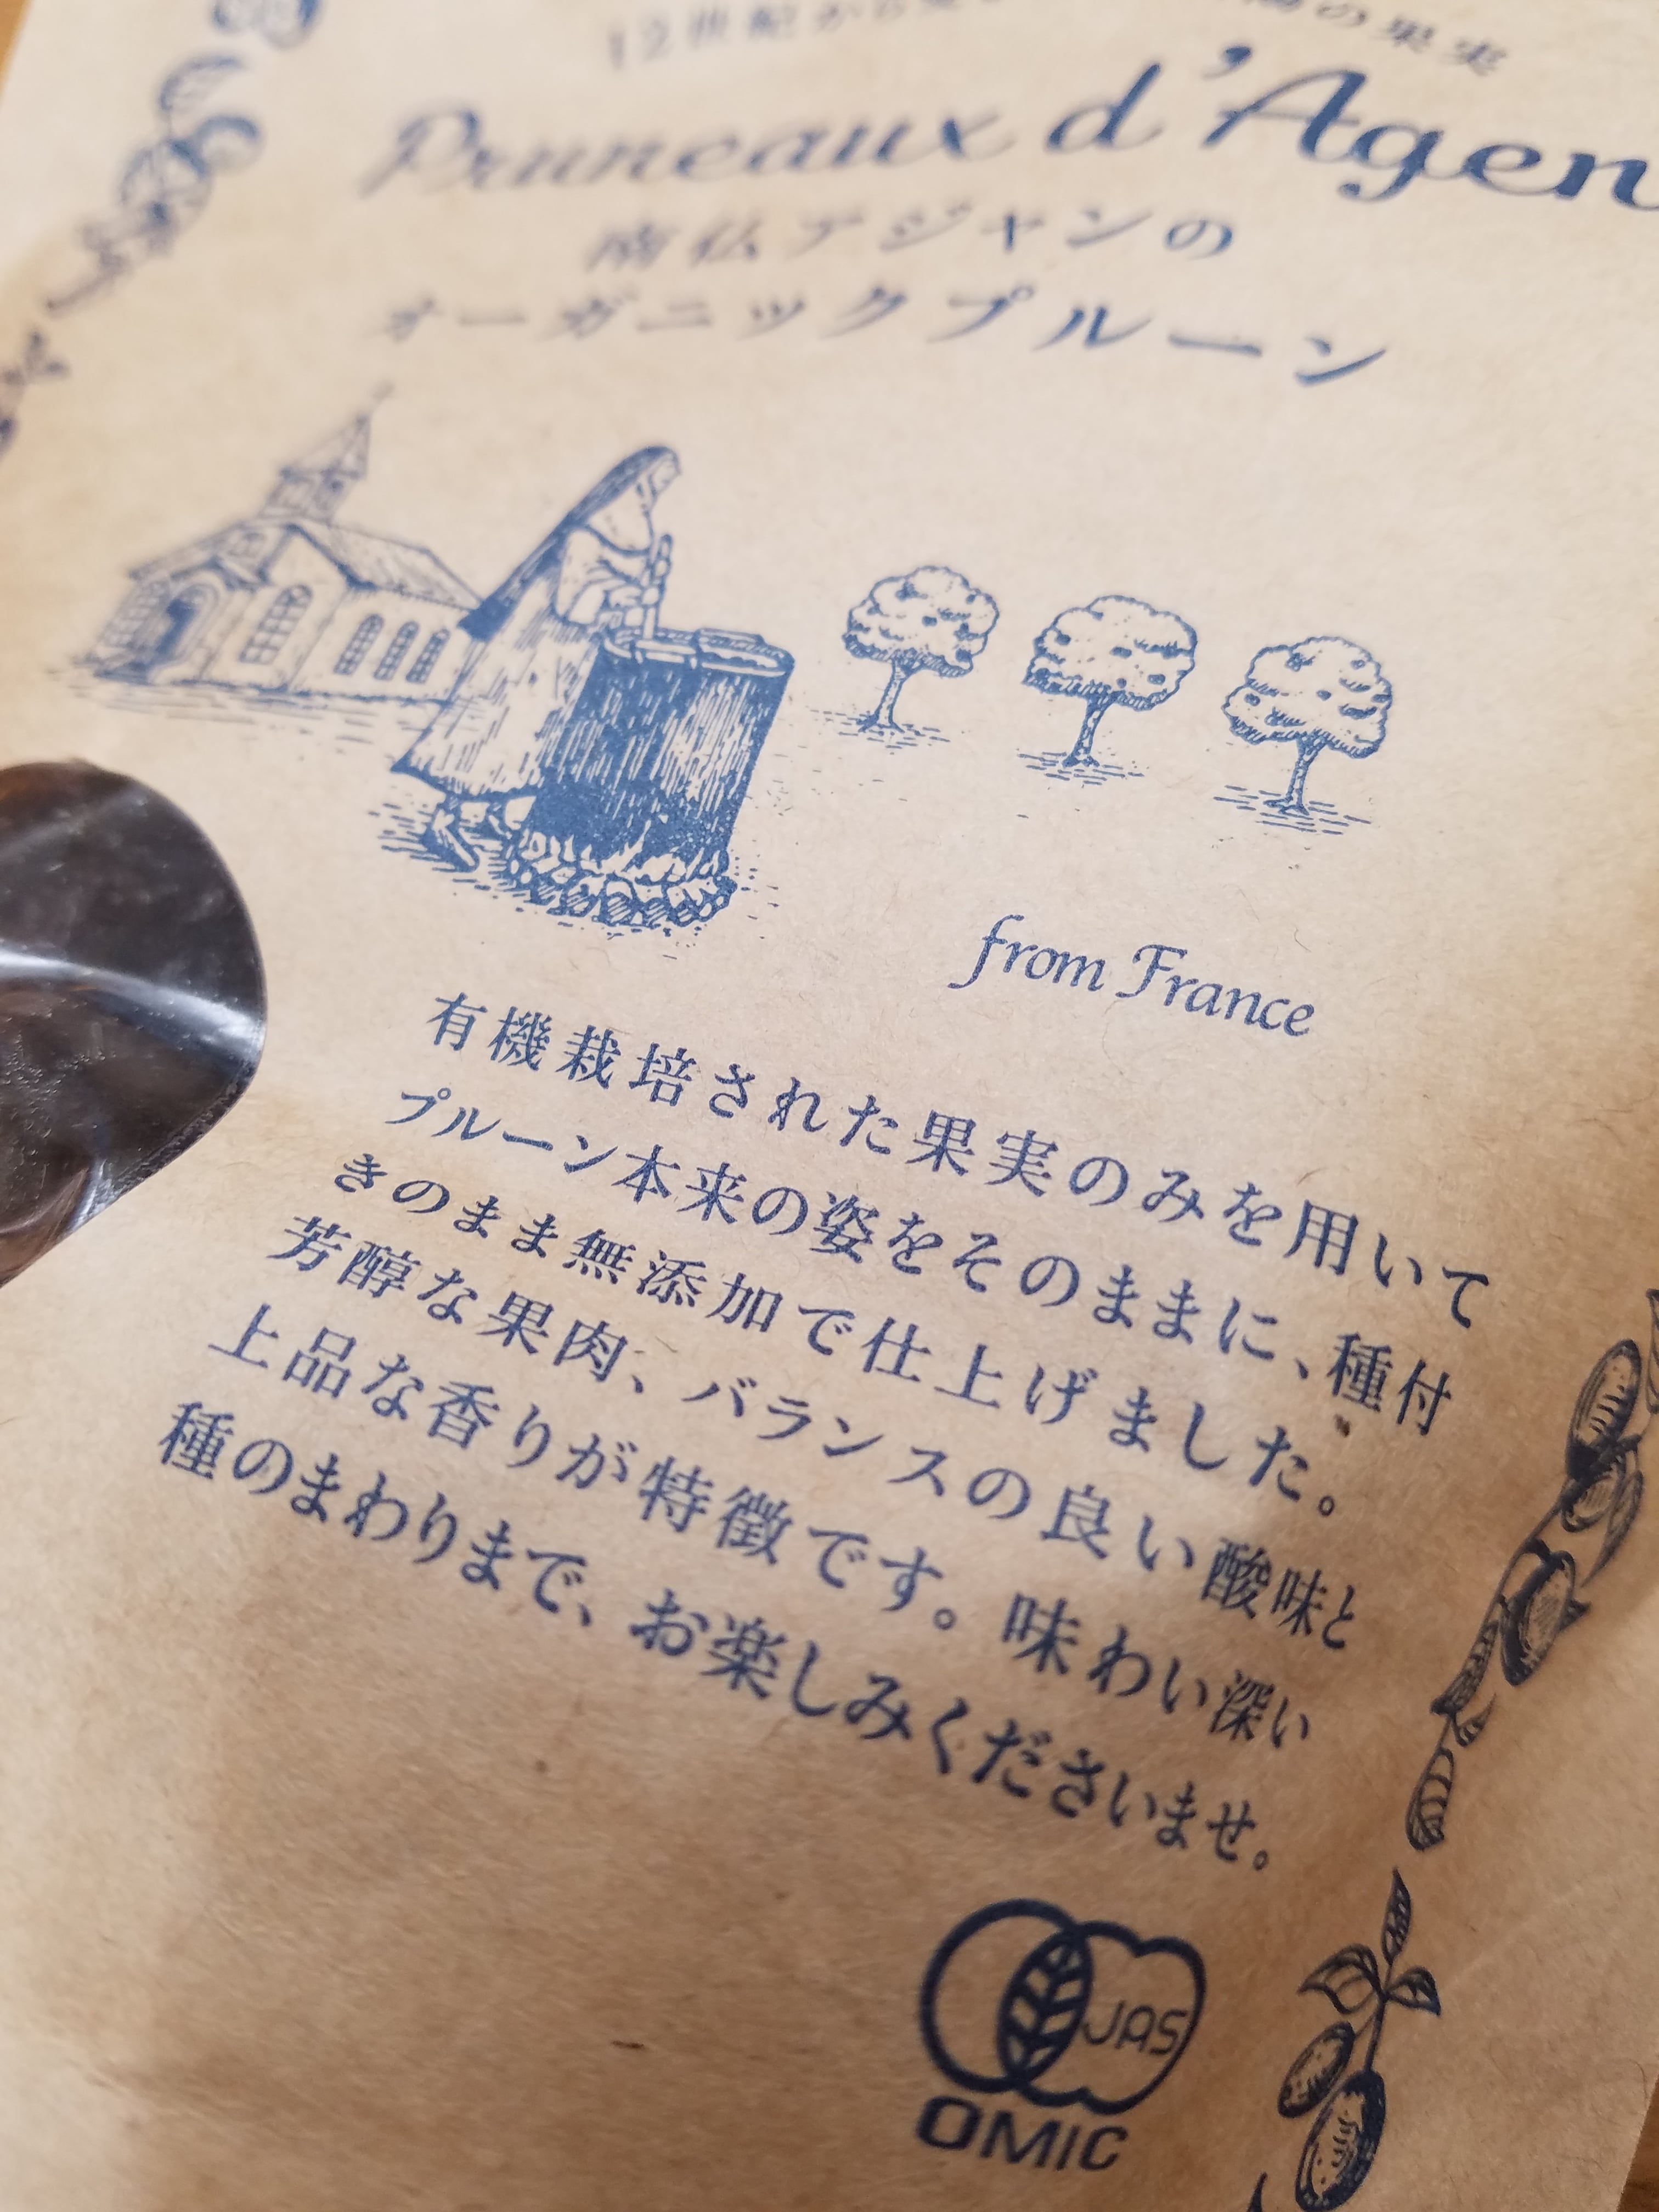 12世紀から
の果実
Pruneaux d'Agen
南仏アジャンの
オーガニックプルーン
from France
有機栽培された果実のみを用いて
プルーン本来の姿をそのままに、種付
きのまま無添加で仕上げました。
芳醇な果肉、バランスの良い酸味と
上品な香りが特徴です。味わい深い
種のまわりまで、お楽しみくださいませ。
JAS
OMIC